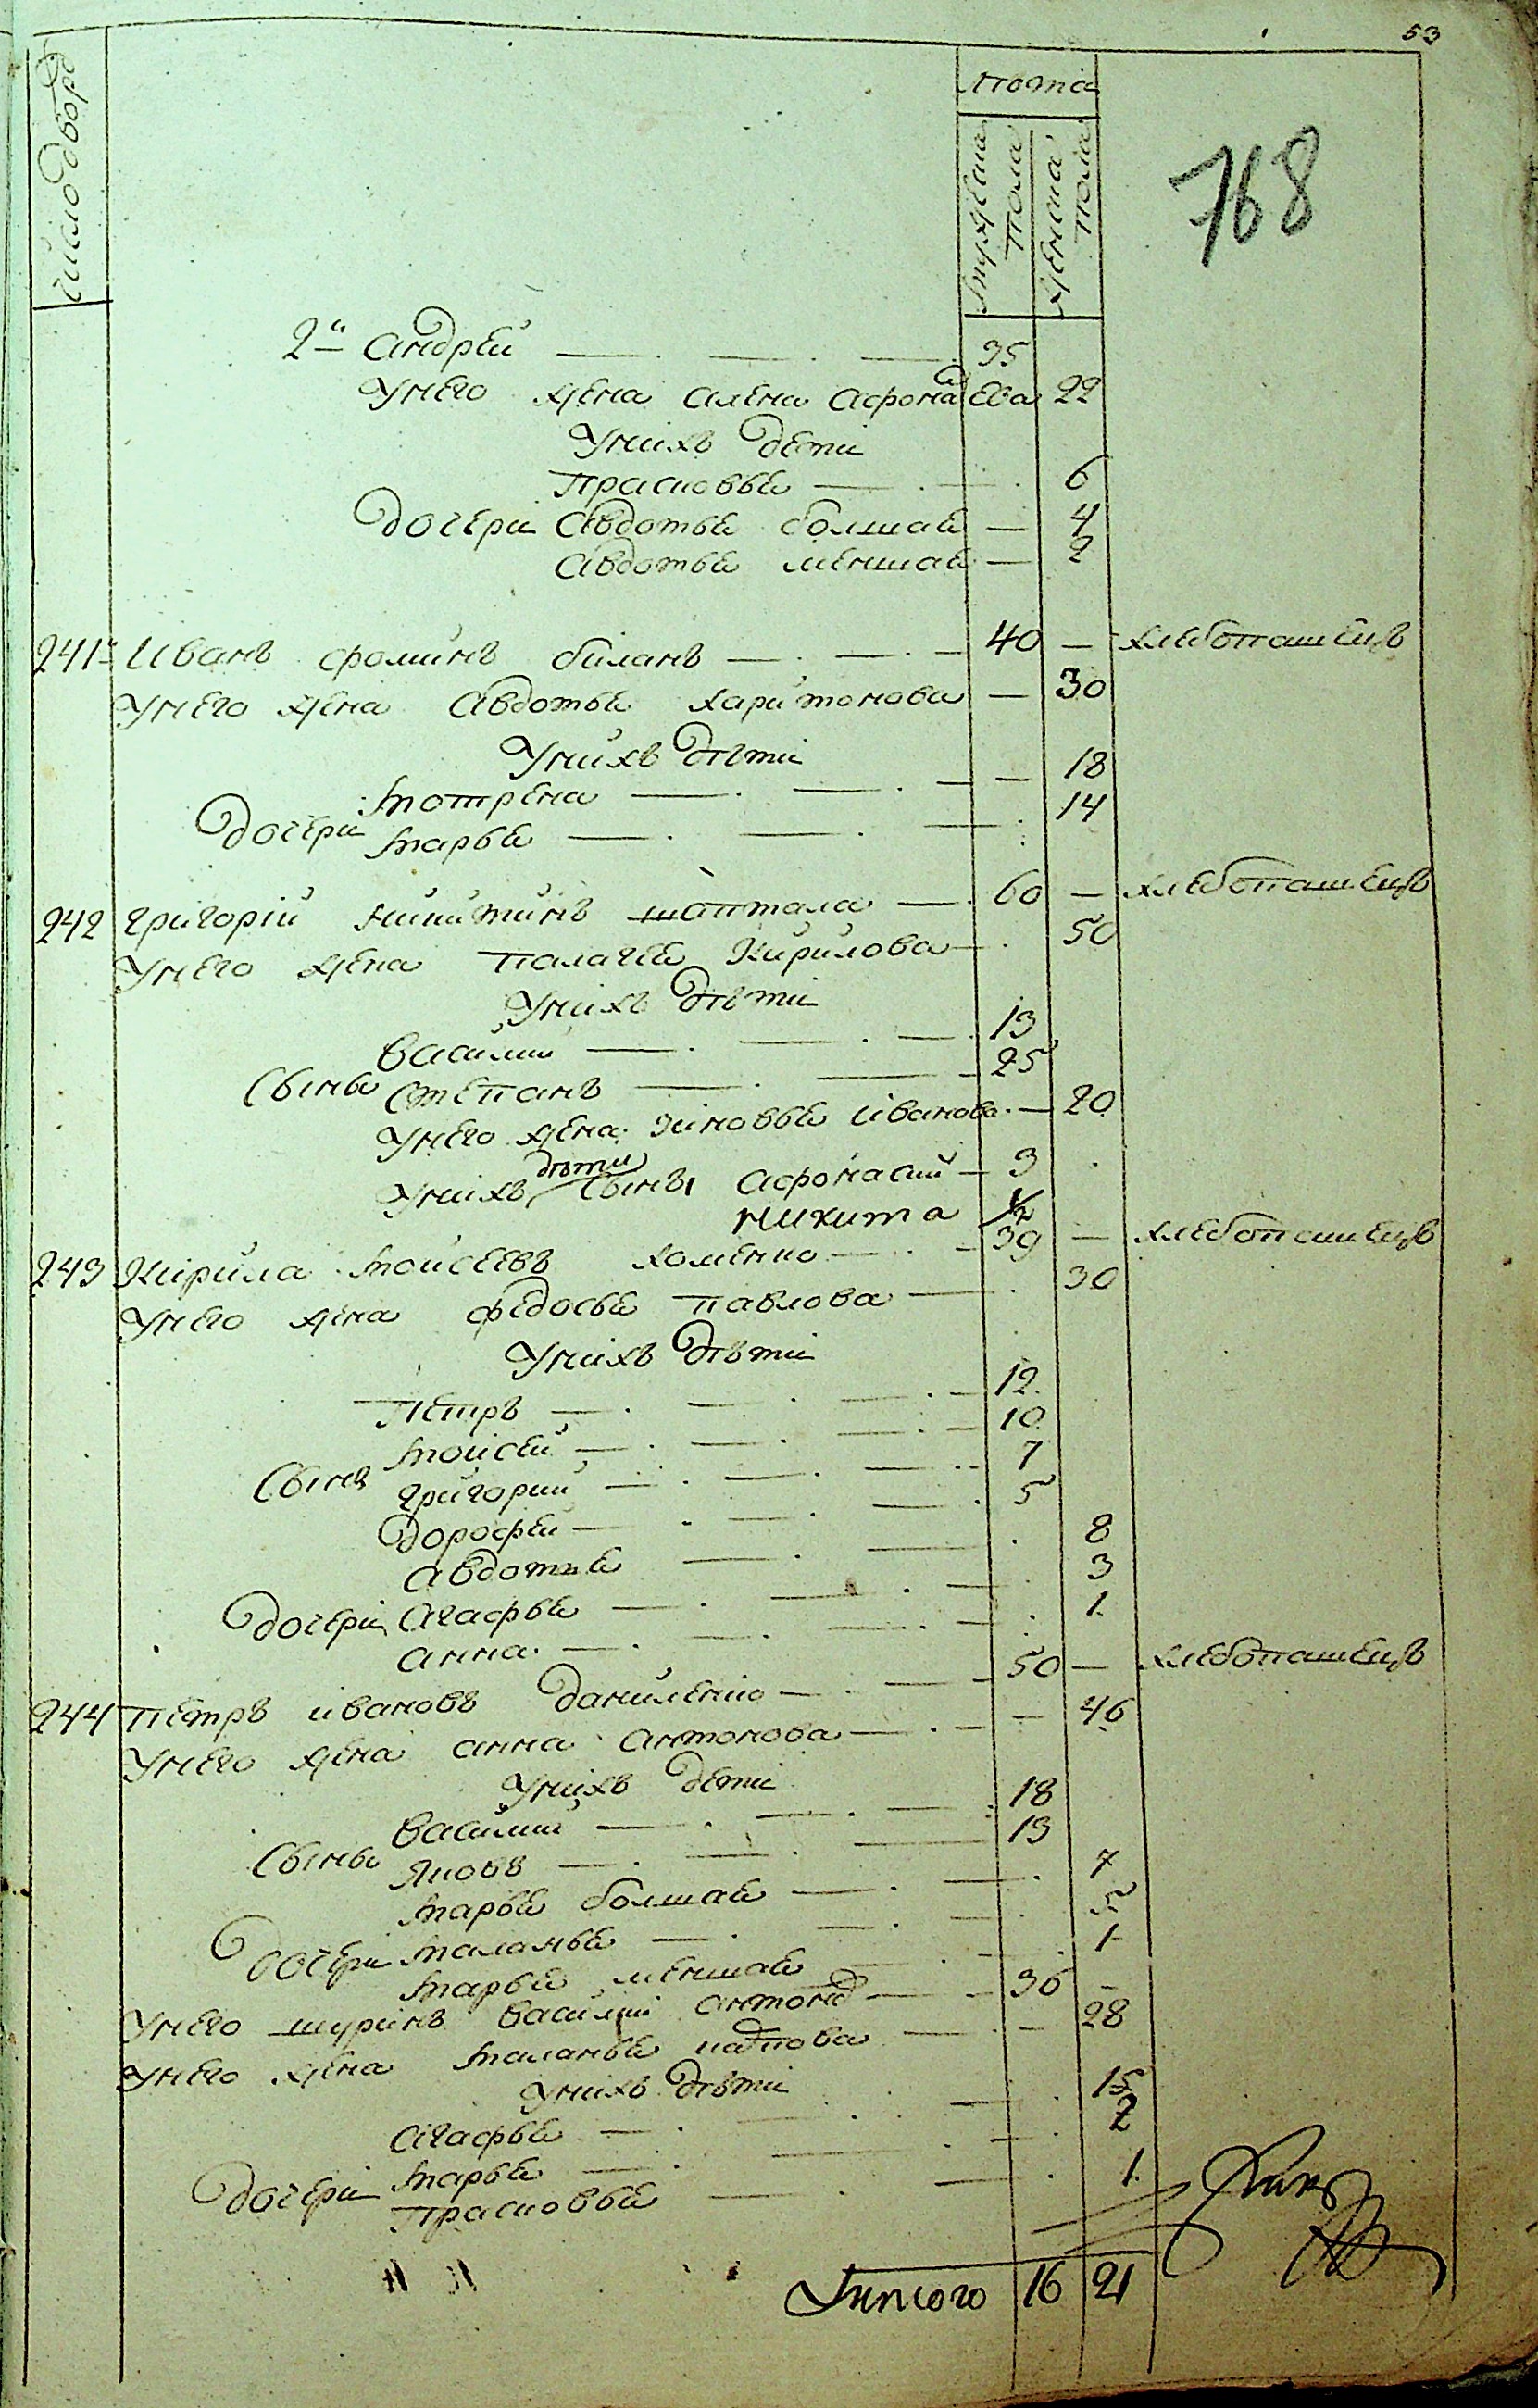 53
768
число дворовъ
лѣта
мужеска пола
женска пола
2й Андрей 35
Унего жена Алена Афонасьева 22
Унихъ дети
Прасковья 6
Дочери Авдотья болшая 4
Авдотья меншая 2
241й Иванъ Фоминъ Биланъ 40 — хлебопашецъ
Унего жена Авдотья Харитонова — 30
Унихъ дѣти
Мотрена — 18
Дочери Марья 14
242 Григорій Никитинъ Шаптала 60 — хлебопашецъ
Унего жена Палагея Кирилова 50
Унихъ дѣти
Василий 13
Сынья Степанъ 25
Унего жена Зиновья Иванова — 20
Унихъ дѣти Сынъ Афонасий 3
Никита 1/2
243 Кирила Моисеевъ Хоменко 39 — хлебопашецъ
Унего жена Федосья Павлова 30
Унихъ дѣти
Петръ 12
Моисей 10
Сынья Григорий 7
Дорофей 5
Авдотья 8
Дочери Агафья 3
Анна 1
244 Петръ Ивановъ Даниленко 50 — хлебопашецъ
Унего жена Анна Антонова — 46
Унихъ дети
Василий 18
Сынья Яковъ 13
Марья болшая 7
Дочери Маланья 5
Марья меншая 1
Унего шуринъ Василий Антоновъ 36 —
Унего жена Маланья 28
Унихъ дѣти
Агафья 15
Дочери Марья 2
Прасковья 1
Итого 16 21